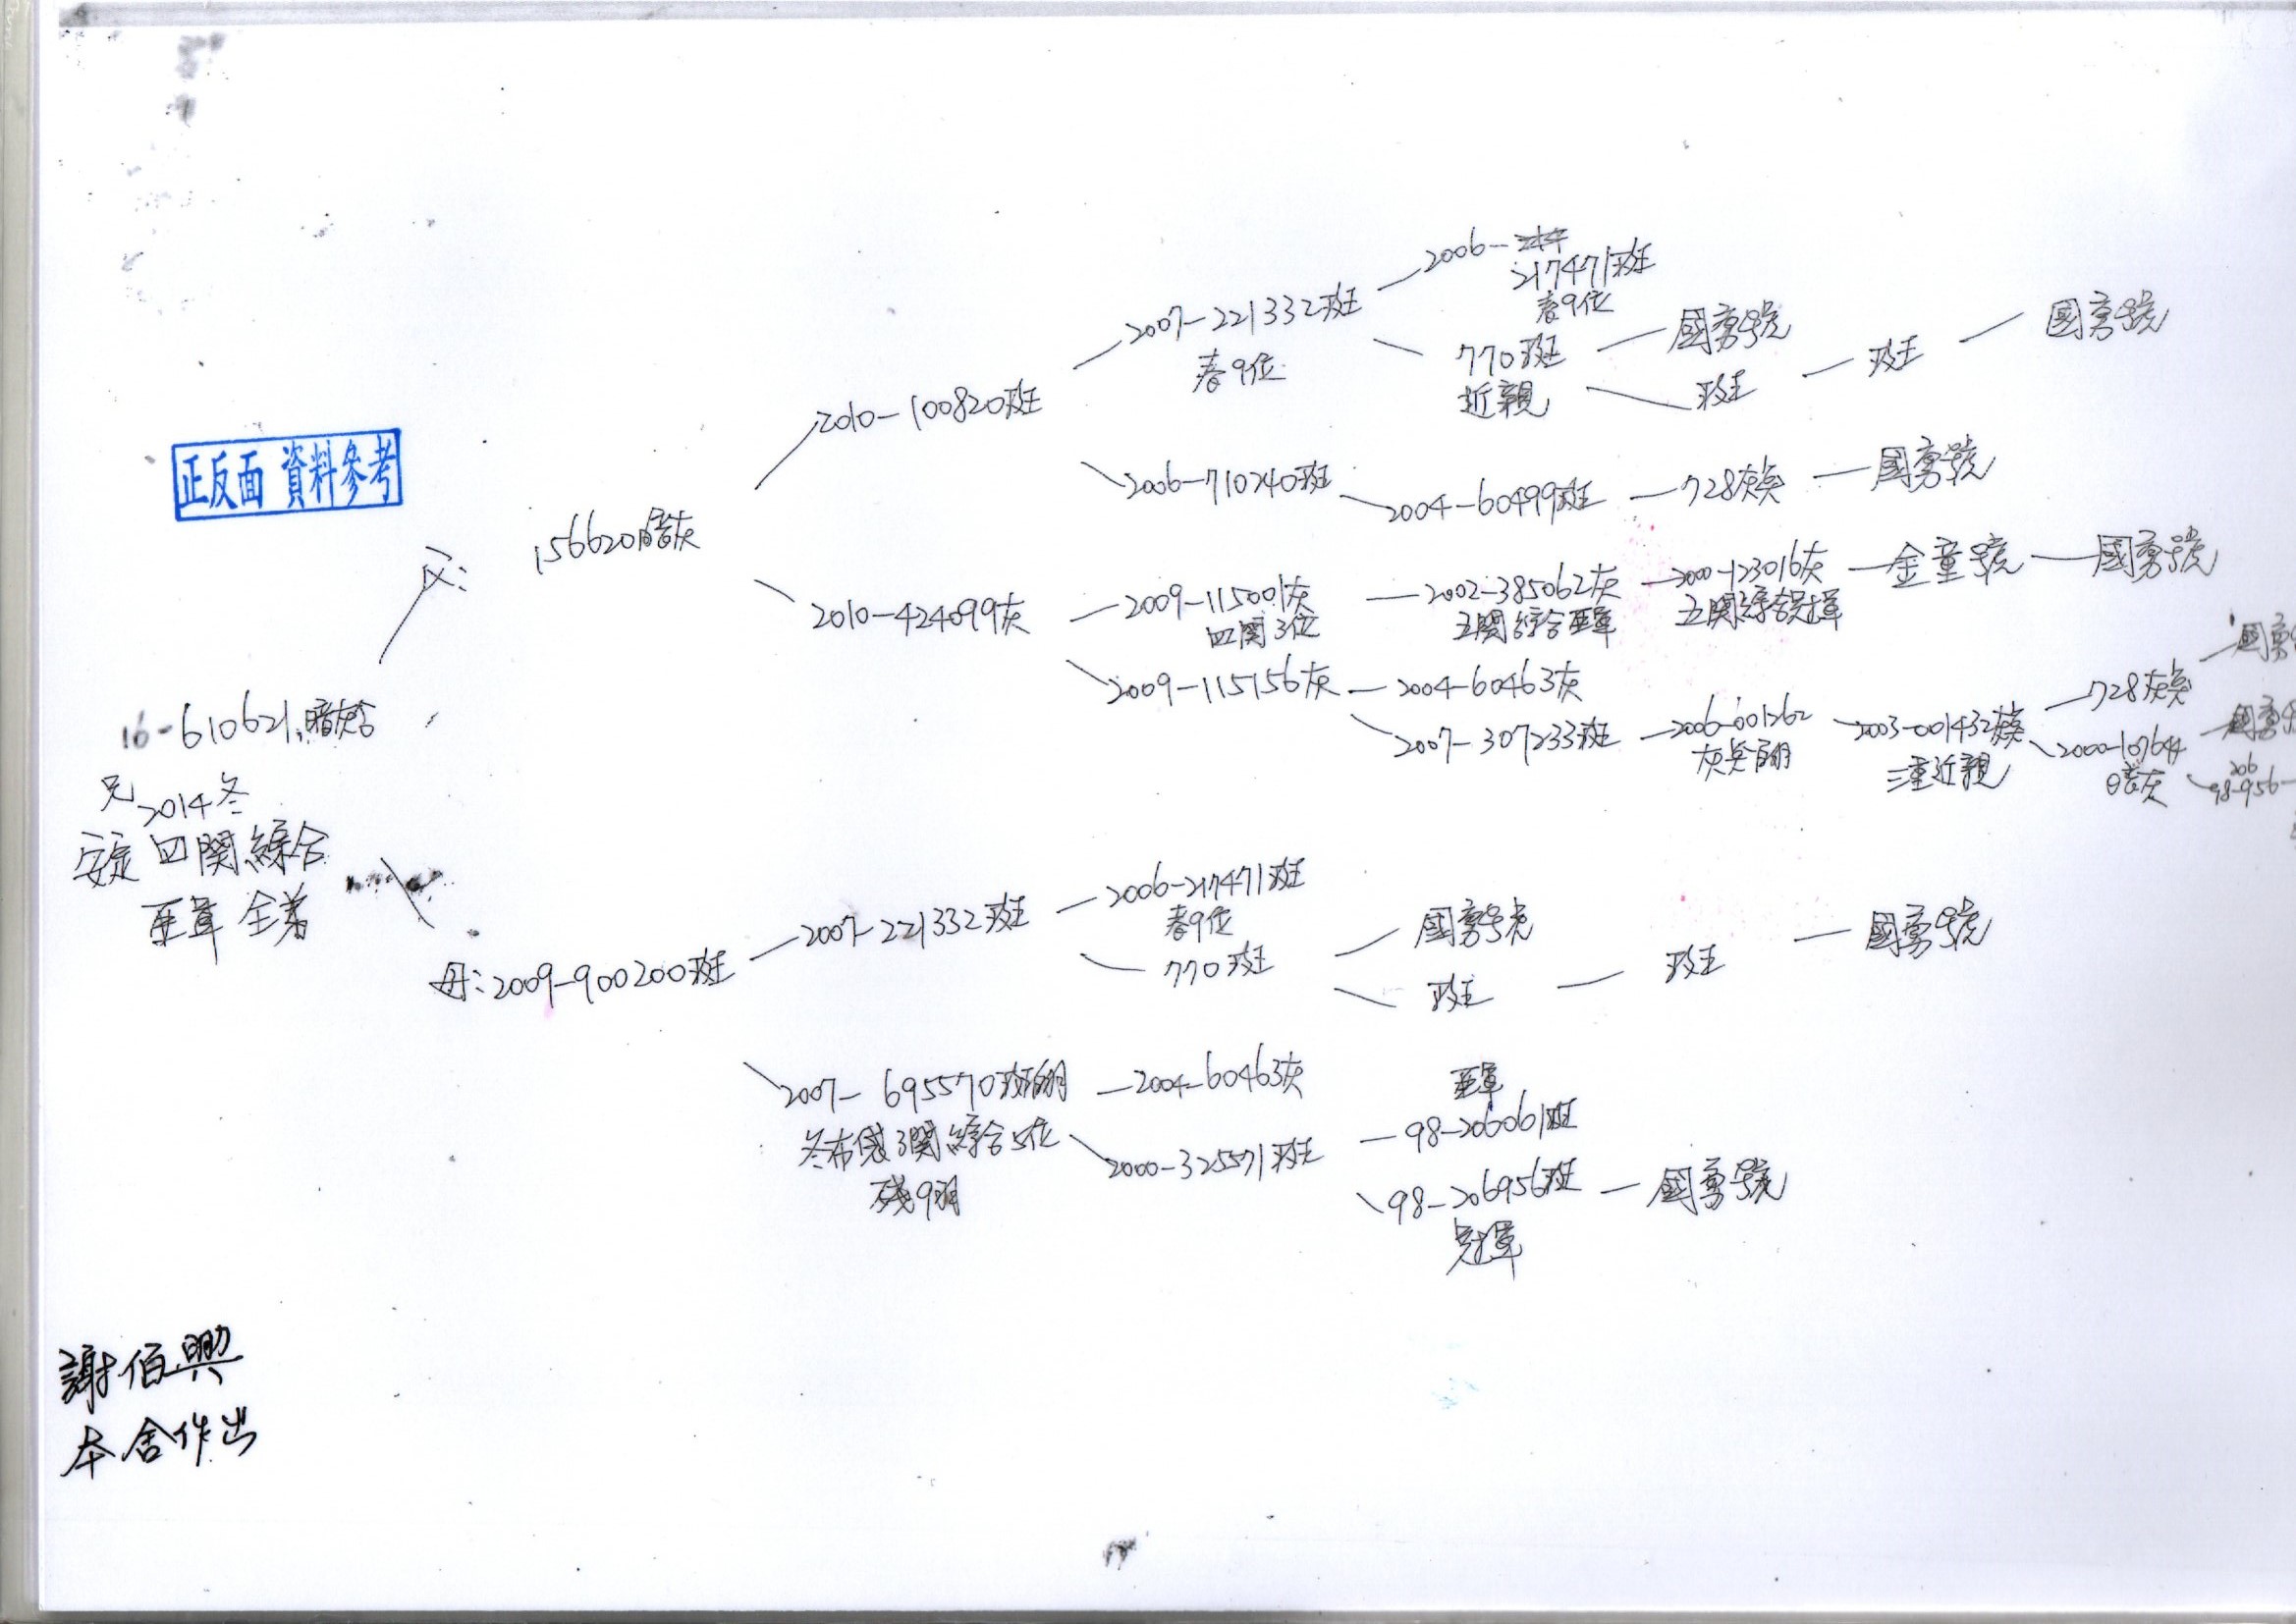 正反面 資料參考
16-610621.暗灰
兄 2014冬
安定 四関綜合
亞軍 全弟
父:
156620暗灰
2010-100820斑
2007-221332斑
春9位
2006-
217471斑
春9位
770斑
近親
國勇號
斑
斑
國勇號
2006-710240斑
2004-60499斑
728灰
國勇號
2010-424099灰
2009-115001灰
四関3位
2002-385062灰
五関綜合亞軍
2000-123016灰
五関綜合冠軍
金童號
國勇號
2009-115156灰
2004-60463灰
2007-307233斑
2006-001262
灰
2003-001432
三重近親
728灰
國勇
2000-107644
暗灰
國勇
206
98-956-
母:2009-900200斑
2007-221332斑
2006-217471斑
春9位
770斑
國勇號
斑
斑
國勇號
2007-695570斑
冬布袋3関綜合5位
殘9羽
2004-60463灰
2000-325571斑
亞軍
98-206061斑
98-206956斑
冠軍
國勇號
謝佰興
本舍作出